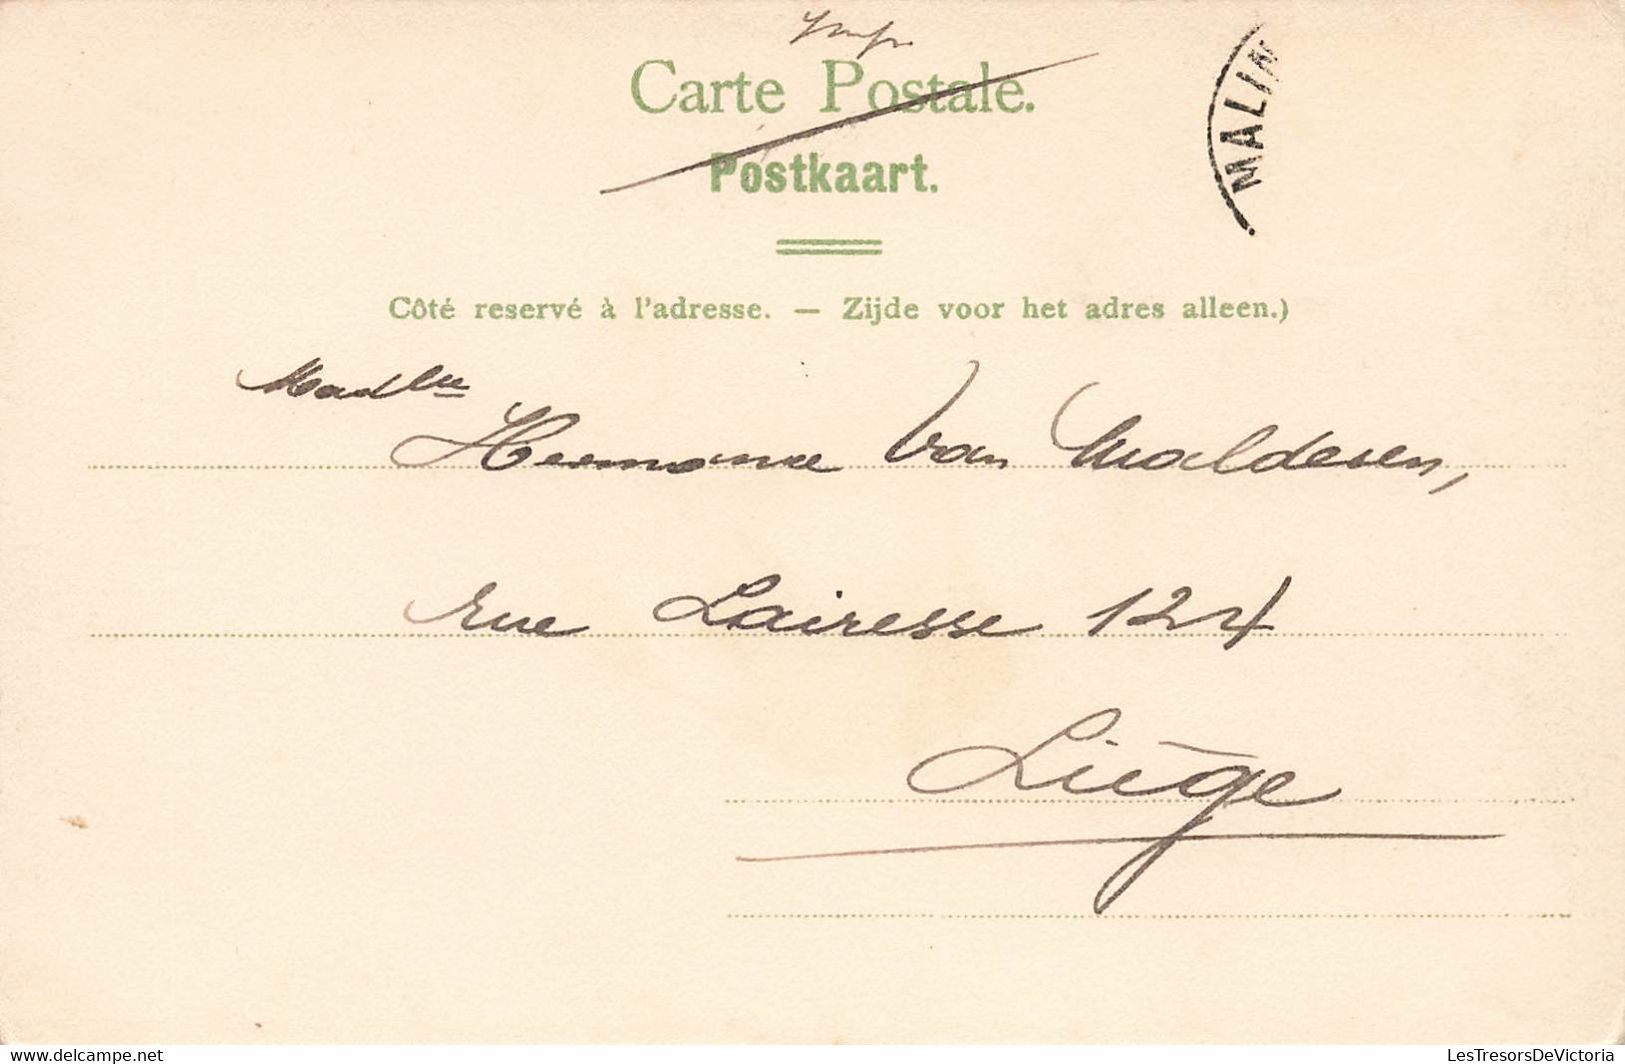 Carte Postale.
Postkaart.
MALIN
Côté reservé à l'adresse. — Zijde voor het adres alleen.)
Madlle
Hermanne Van Malderen,
rue Lairesse 124
Liège
LesTresorsDeVictoria